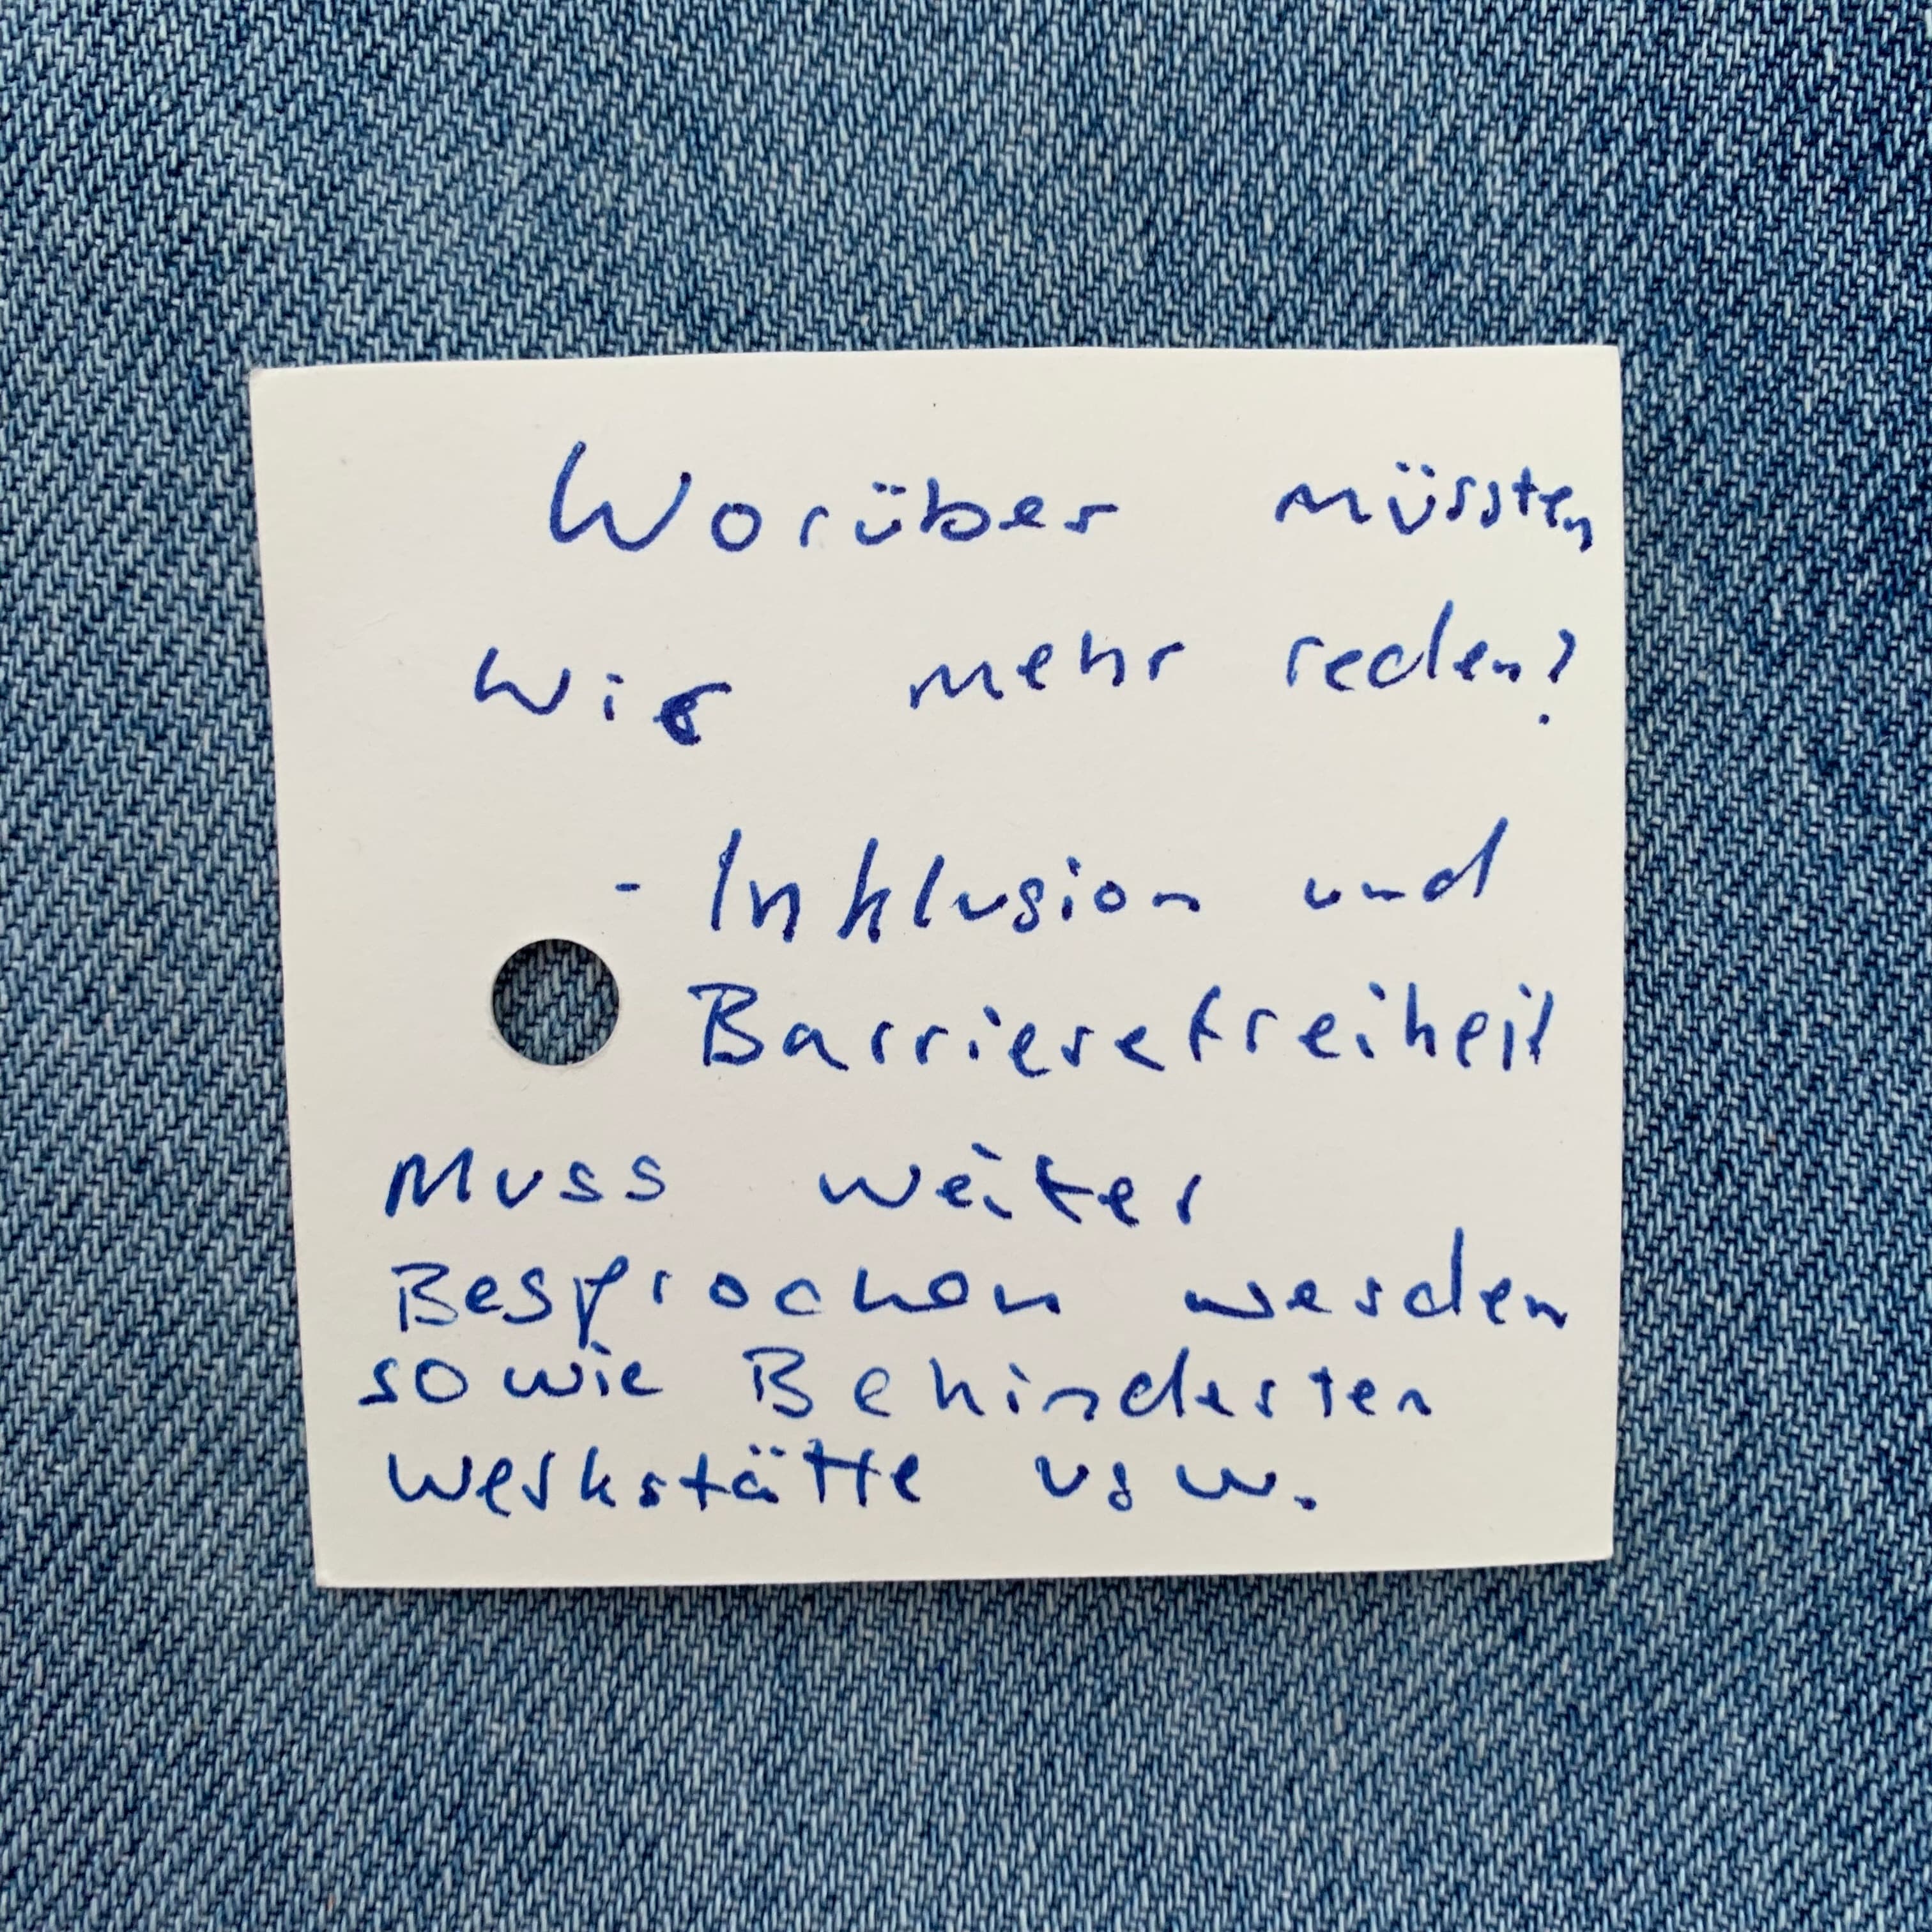 Worüber müssten
wir mehr reden?
- Inklusion und
Barrierefreiheit
Muss weiter
Besprochen werden
sowie Behinderten
werkstätte usw.